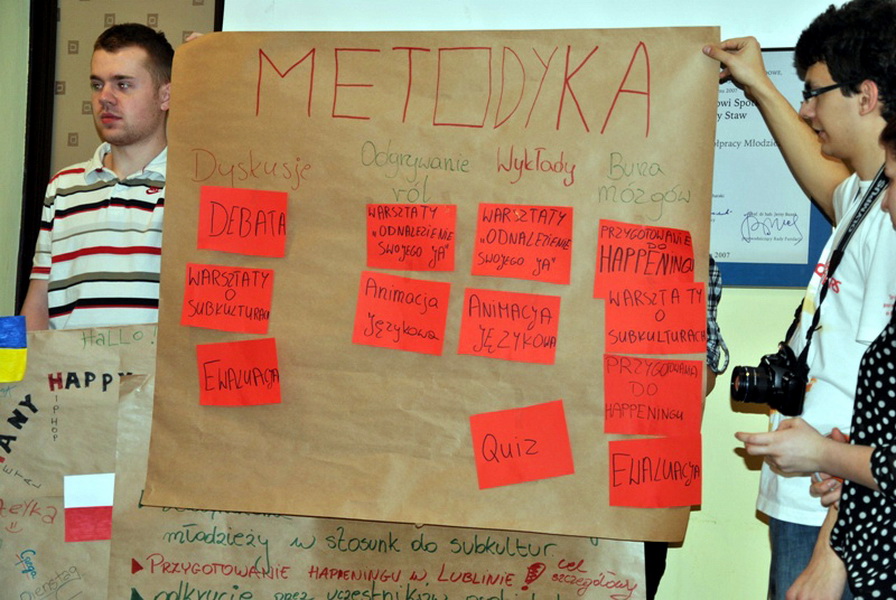 METODYKA
Dyskusje
DEBATA
WARSZTATY
O
SUBKULTURACH
EWALUACJA
Odgrywanie
ról
WARSZTATY
„ODNALEZIENIE
SWOJEGO JA"
Animacja
Językowa
Wykłady
WARSZTATY
„ODNALEZIENIE
SWOJEGO JA"
ANIMACJA
JĘZYKOWA
Quiz
Burza
mózgów
PRZYGOTOWANIE
DO
HAPPENINGU
WARSZTATY
O
SUBKULTURACH
PRZYGOTOWANIA
DO
HAPPENINGU
EWALUACJA
Hallo!
HAPPY
HIPHOP
ANY
młodzieży w stosunk do subkultur.
PRZYGOTOWANIE HAPPENINGU W LUBLINIE! cel
szczegółowy
odkrycie przez uczestników
Dienstag
2007
owi Spo
y Staw
półpracy Młodzie
2007
OLYMPUS